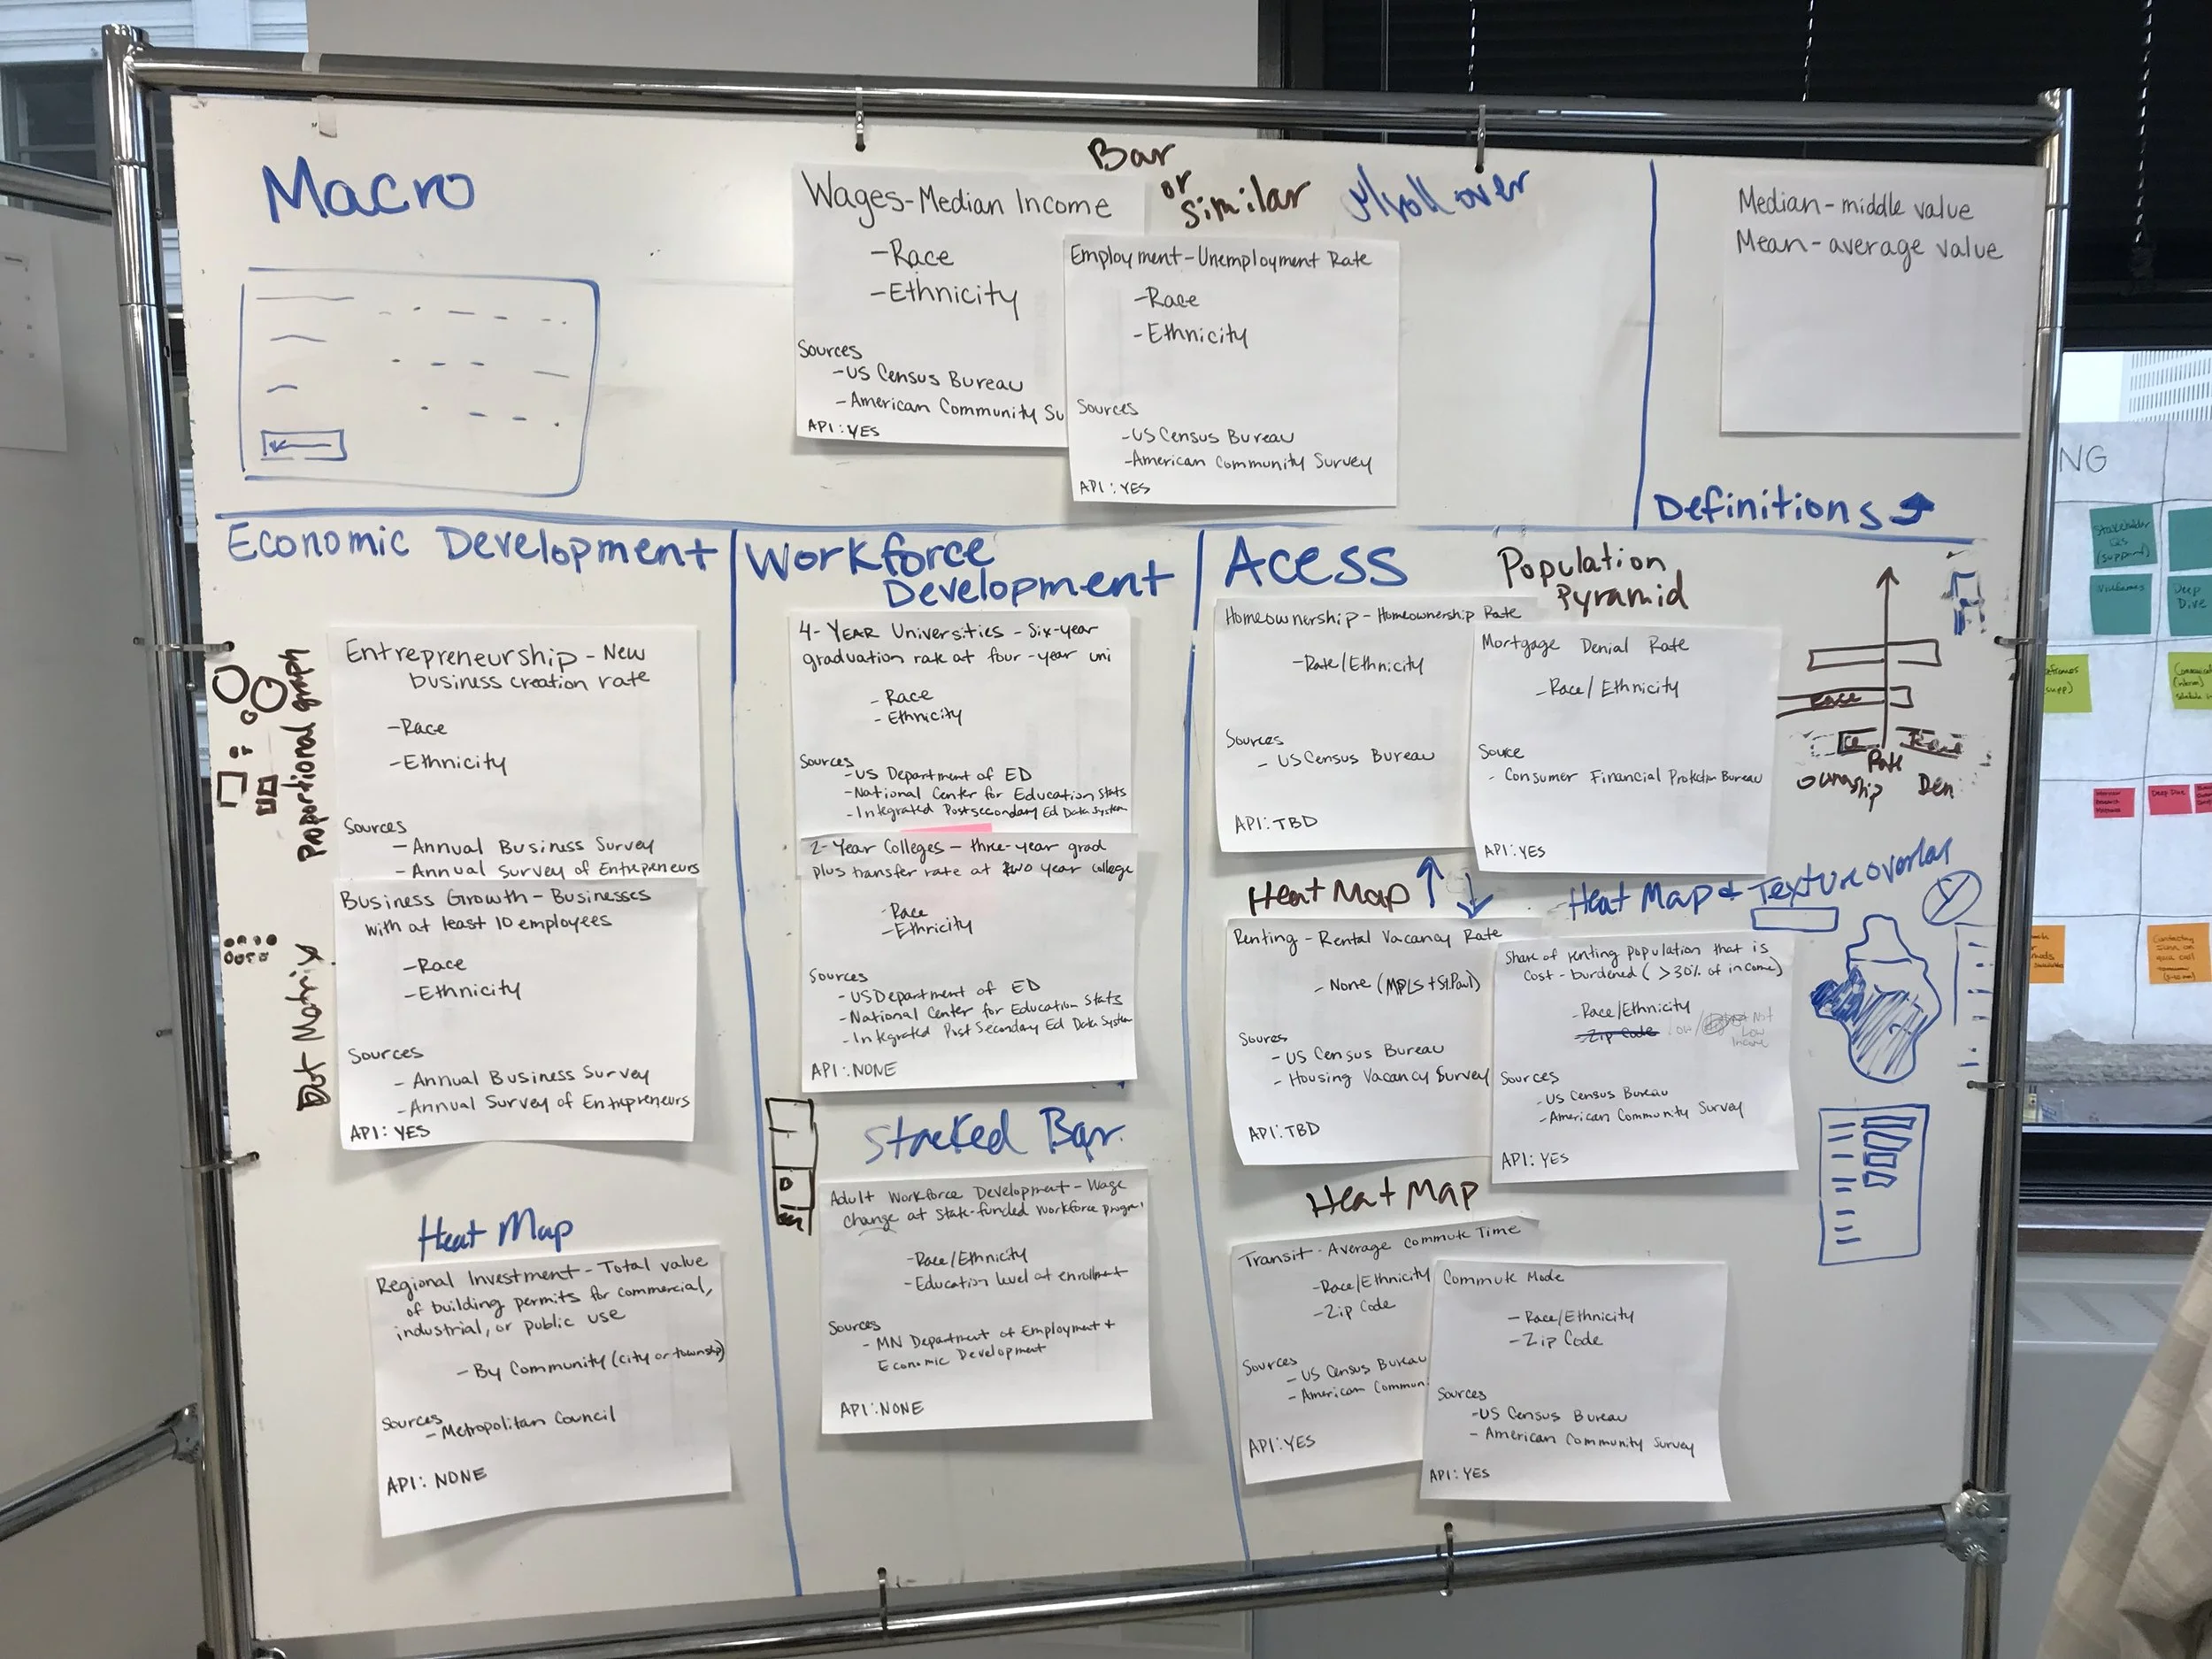 Macro
Bar
or
Similar
Wages-Median Income
-Race
-Ethnicity
Sources
-US Census Bureau
-American Community Su
API: YES
Employment-Unemployment Rate
-Race
-Ethnicity
Sources
-US Census Bureau
-American Community Survey
API: YES
Median-middle value
Mean-average value
Definitions
Economic Development
Proportional graph
or
Entrepreneurship-New
business creation rate
-Race
-Ethnicity
Sources
-Annual Business Survey
-Annual Survey of Entrepreneurs
Dot Matrix
Business Growth-Businesses
with at least 10 employees
-Race
-Ethnicity
Sources
-Annual Business Survey
-Annual Survey of Entrepreneurs
API: YES
Heat Map
Regional Investment-Total value
of building permits for commercial,
industrial, or public use
-By Community (city or township)
Sources
-Metropolitan Council
API: NONE
Workforce
Development
4-YEAR Universities-Six-year
graduation rate at four-year uni
-Race
-Ethnicity
Sources
-US Department of ED
-National Center for Education Stats
-Integrated Postsecondary Ed Data System
2-Year Colleges-three-year grad
plus transfer rate at two year college
-Race
-Ethnicity
Sources
-US Department of ED
-National Center for Education Stats
-Integrated Post Secondary Ed Data System
API: NONE
Stacked Bar
Adult Workforce Development-Wage
change at state-funded workforce progr
-Race/Ethnicity
-Education level at enrollment
Sources
-MN Department of Employment +
Economic Development
API: NONE
Acess
Population
Pyramid
Homeownership-Homeownership Rate
-Rate/Ethnicity
Sources
-US Census Bureau
API: TBD
Mortgage Denial Rate
-Race/Ethnicity
Source
-Consumer Financial Protection Bureau
API: YES
Race
Rate
Ownership
Den
Heat Map
Renting-Rental Vacancy Rate
-None (MPLS + St.Paul)
Sources
-US Census Bureau
-Housing Vacancy Survey
API: TBD
Heat Map & Texture overlay
Share of renting population that is
cost-burdened (>30% of income)
-Race/Ethnicity
-Zip Code
Not
Low
Income
Sources
-US Census Bureau
-American Community Survey
API: YES
Heat Map
Transit-Average Commute Time
-Race/Ethnicity
-Zip Code
Sources
-US Census Bureau
-American Commun
API: YES
Commute Mode
-Race/Ethnicity
-Zip Code
Sources
-US Census Bureau
-American Community Survey
API: YES
NG
Stakeholder
(support)
Deep
Dive
Deep Dive